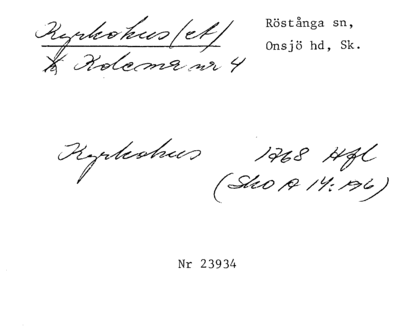 Kyrkohus (et) Röstånga sn,
Kdcmr nr 4 Onsjö hd, Sk.
Kyrkohus 1768 Hfl
(SkO A 14: 196)
Nr 23934